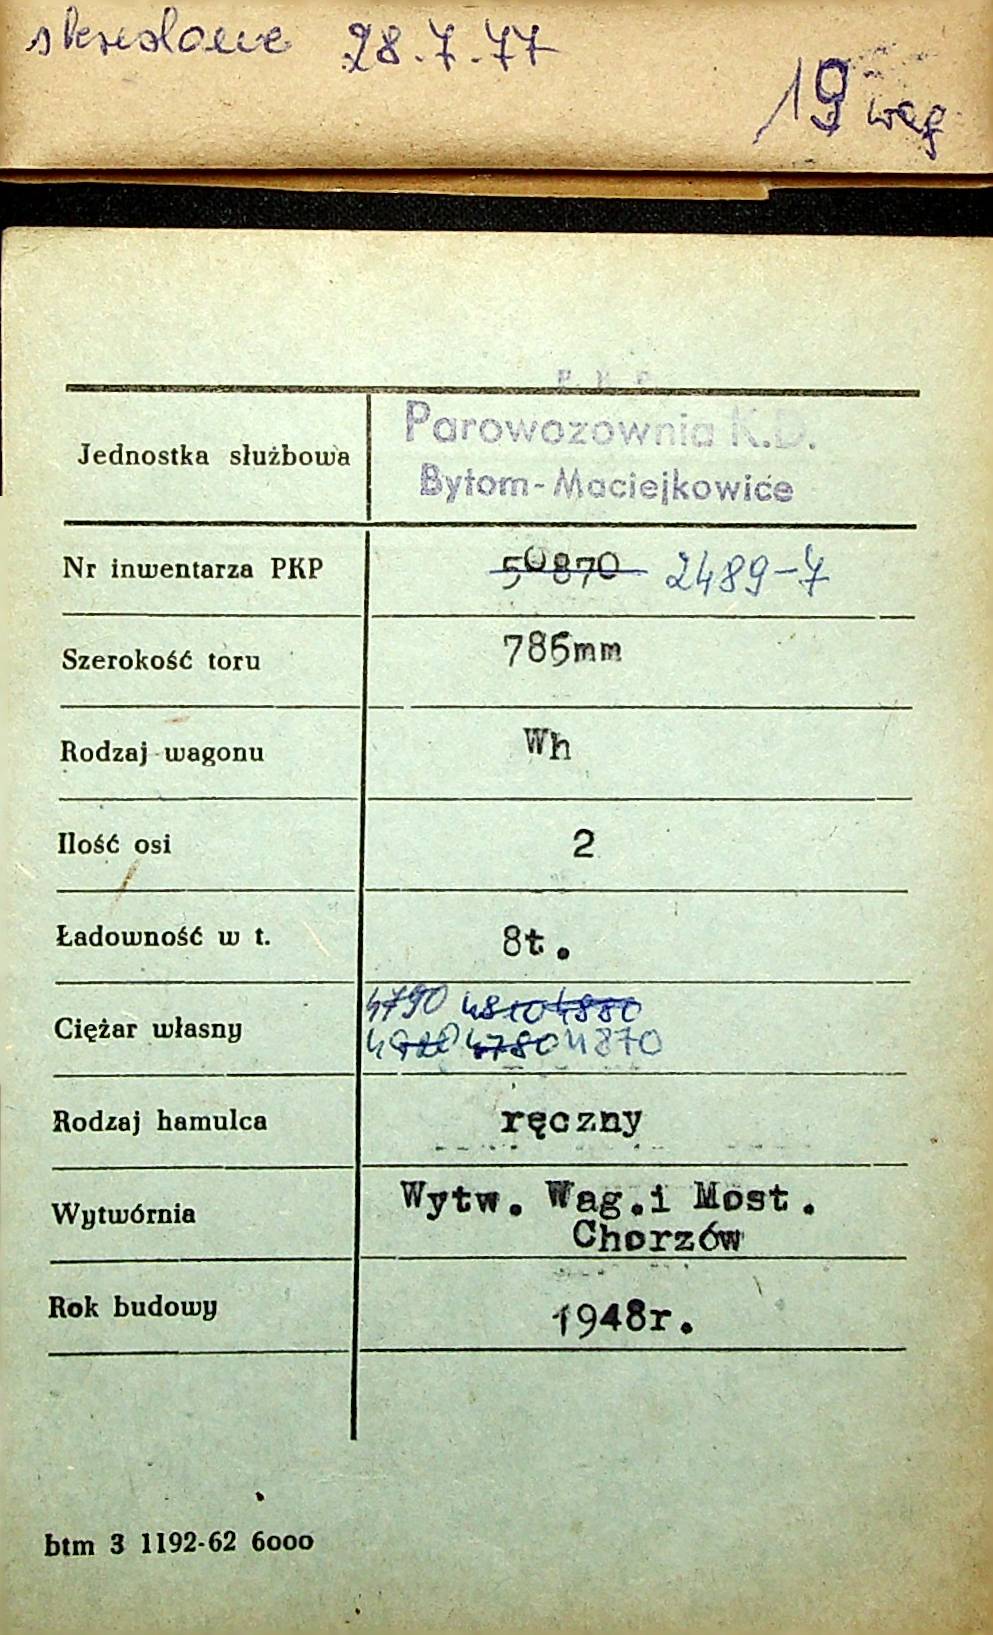 skreślone 28.7.77
19 wag
P. K. P.
Parowozownia K.D.
Bytom-Maciejkowice
Jednostka służbowa
Nr inwentarza PKP 50870 2489-7
Szerokość toru 785mm
Rodzaj wagonu Wh
Ilość osi 2
Ładowność w t. 8t.
4790 4810 4880
Ciężar własny
4780 4870
Rodzaj hamulca ręczny
Wytwórnia Wytw. Wag.i Most.
Chorzów
Rok budowy 1948r.
btm 3 1192-62 6000